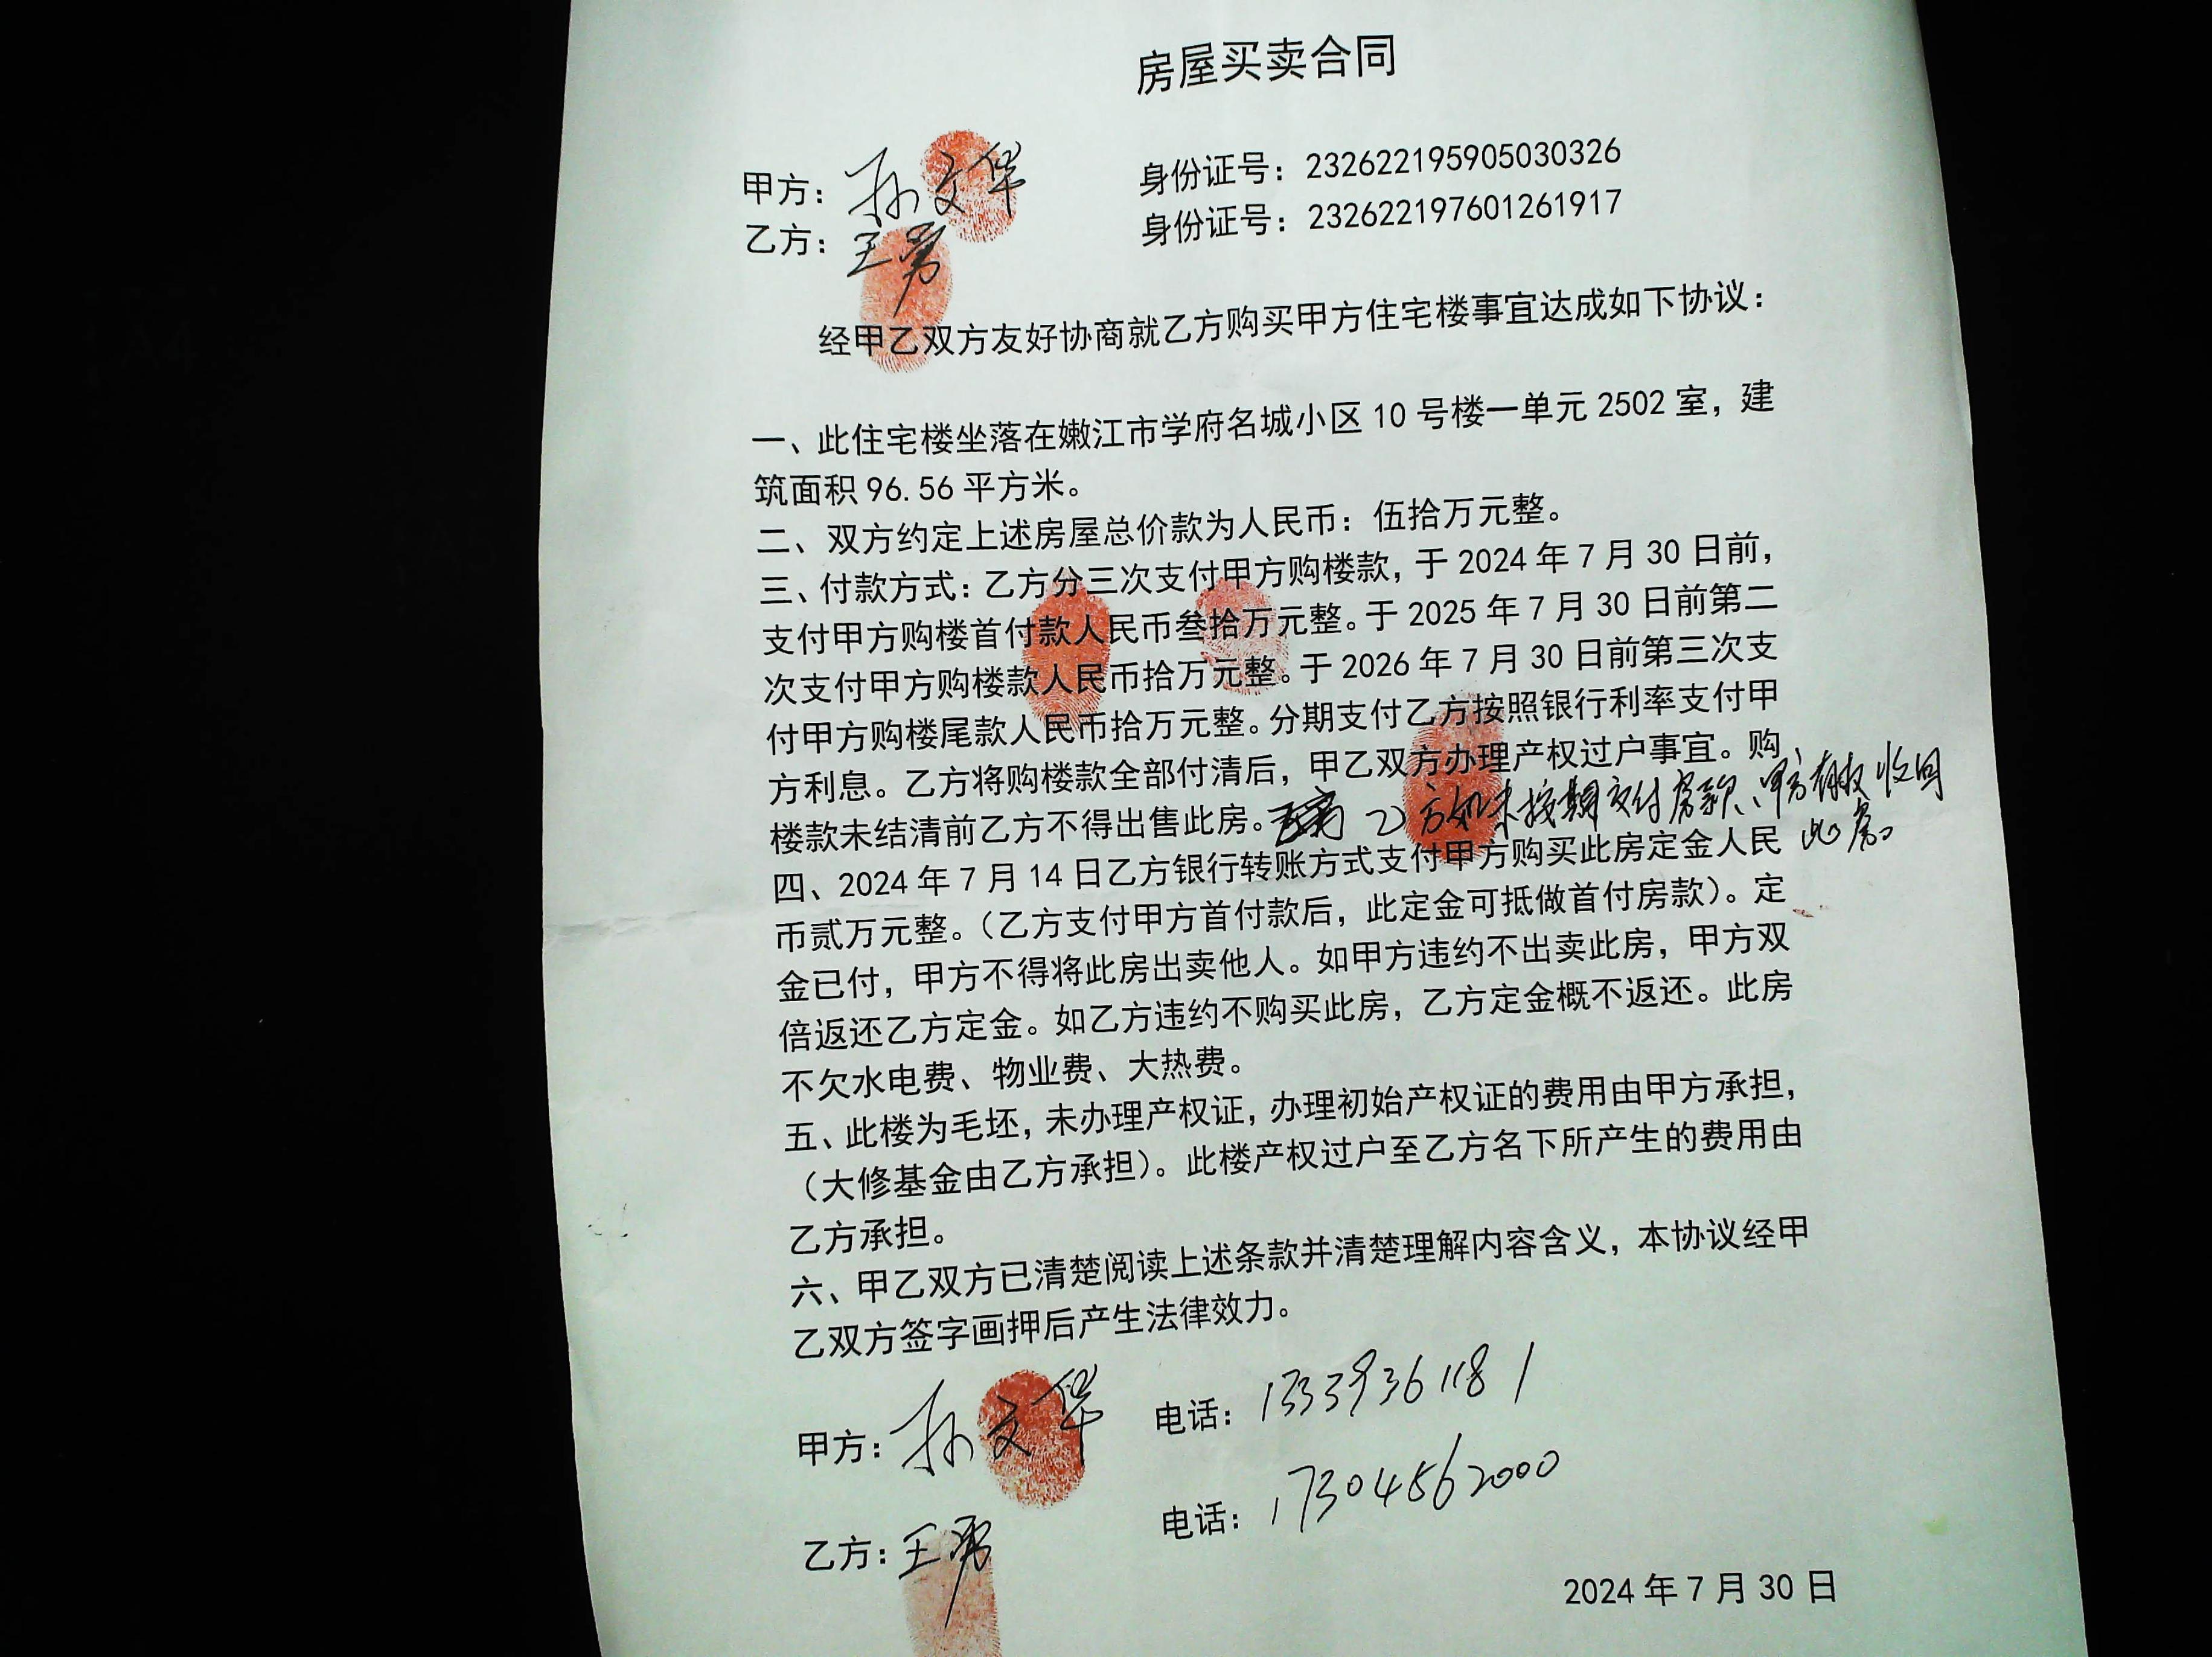 房屋买卖合同
甲方：孙文华 身份证号：232622195905030326
乙方：王勇 身份证号：232622197601261917
经甲乙双方友好协商就乙方购买甲方住宅楼事宜达成如下协议：
一、此住宅楼坐落在嫩江市学府名城小区10号楼一单元2502室，建
筑面积96.56平方米。
二、双方约定上述房屋总价款为人民币：伍拾万元整。
三、付款方式：乙方分三次支付甲方购楼款，于2024年7月30日前，
支付甲方购楼首付款人民币叁拾万元整。于2025年7月30日前第二
次支付甲方购楼款人民币拾万元整。于2026年7月30日前第三次支
付甲方购楼尾款人民币拾万元整。分期支付乙方按照银行利率支付甲
方利息。乙方将购楼款全部付清后，甲乙双方办理产权过户事宜。购
楼款未结清前乙方不得出售此房。乙方如未按期交付房款、甲方有权收回
此房。
四、2024年7月14日乙方银行转账方式支付甲方购买此房定金人民
币贰万元整。（乙方支付甲方首付款后，此定金可抵做首付房款）。定
金已付，甲方不得将此房出卖他人。如甲方违约不出卖此房，甲方双
倍返还乙方定金。如乙方违约不购买此房，乙方定金概不返还。此房
不欠水电费、物业费、大热费。
五、此楼为毛坯，未办理产权证，办理初始产权证的费用由甲方承担，
（大修基金由乙方承担）。此楼产权过户至乙方名下所产生的费用由
乙方承担。
六、甲乙双方已清楚阅读上述条款并清楚理解内容含义，本协议经甲
乙双方签字画押后产生法律效力。
甲方：孙文华 电话：13339361181
乙方：王勇 电话：17304562000
2024年7月30日